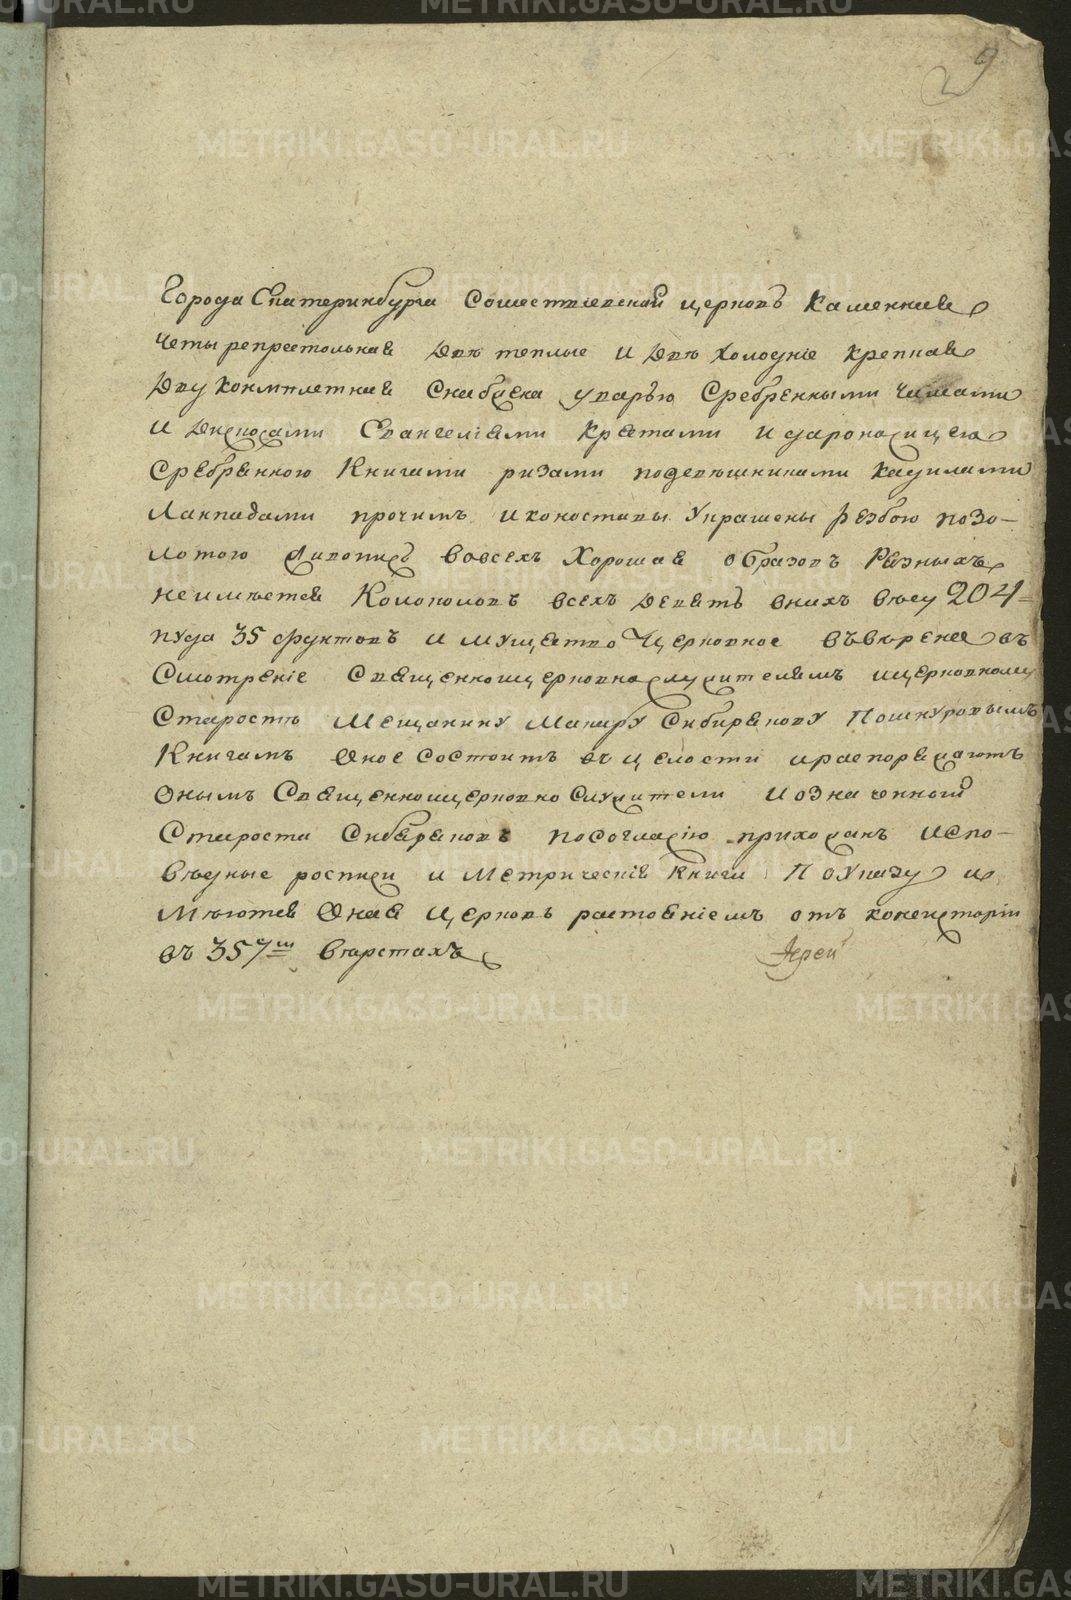 9
Города Екатеринбурга Сошественской церковь Каменная
Четырепрестольная две теплые и две холодние крепкая
Двуконмплетная Снабдена утварью Сребренными чашами
и дискосами Евангелиями крестами и дароносицею
Сребренною Книгами ризами подсвешниками кадилами
Ланпадами прочимъ иконоставы Украшены резбою позо-
лотою живопись вовсехъ Хорошая образовъ Резныхъ
неимѣетса Колоколовъ всехъ девять внихъ вѣсу 204
пуда 35 фунтовъ имущество Церковное въвѣрене въ
Смотрение Священноцерковнослужителямъ ицерковному
Старостѣ Мещанину Макару Сибирякову Пошнуровымъ
Книгамъ Оное Состоитъ въцелости ираспоряжаютъ
Онымъ Священноцерковно Служители и означенный
Староста Сибиряковъ посогласію прихожанъ Испо-
вѣдные росписи и Метрическія Книги Поуказу и
Мѣютса Оная Церковь растояніемъ отъ консисторіи
въ 357ми верстахъ
Іерей